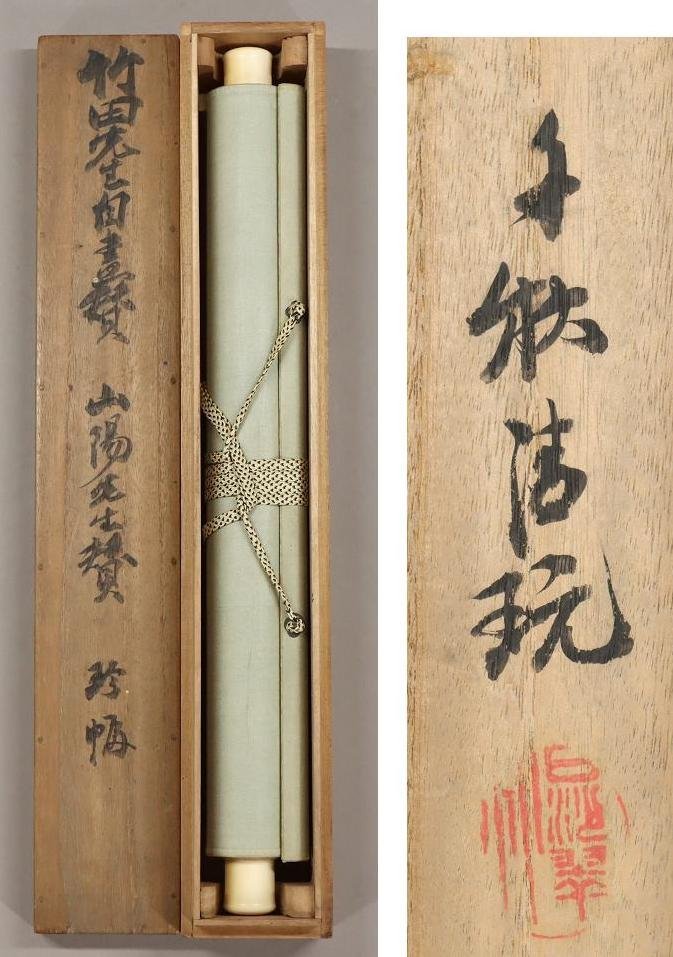 竹田先生自画賛 山陽先生賛 珍幅
千秋清玩